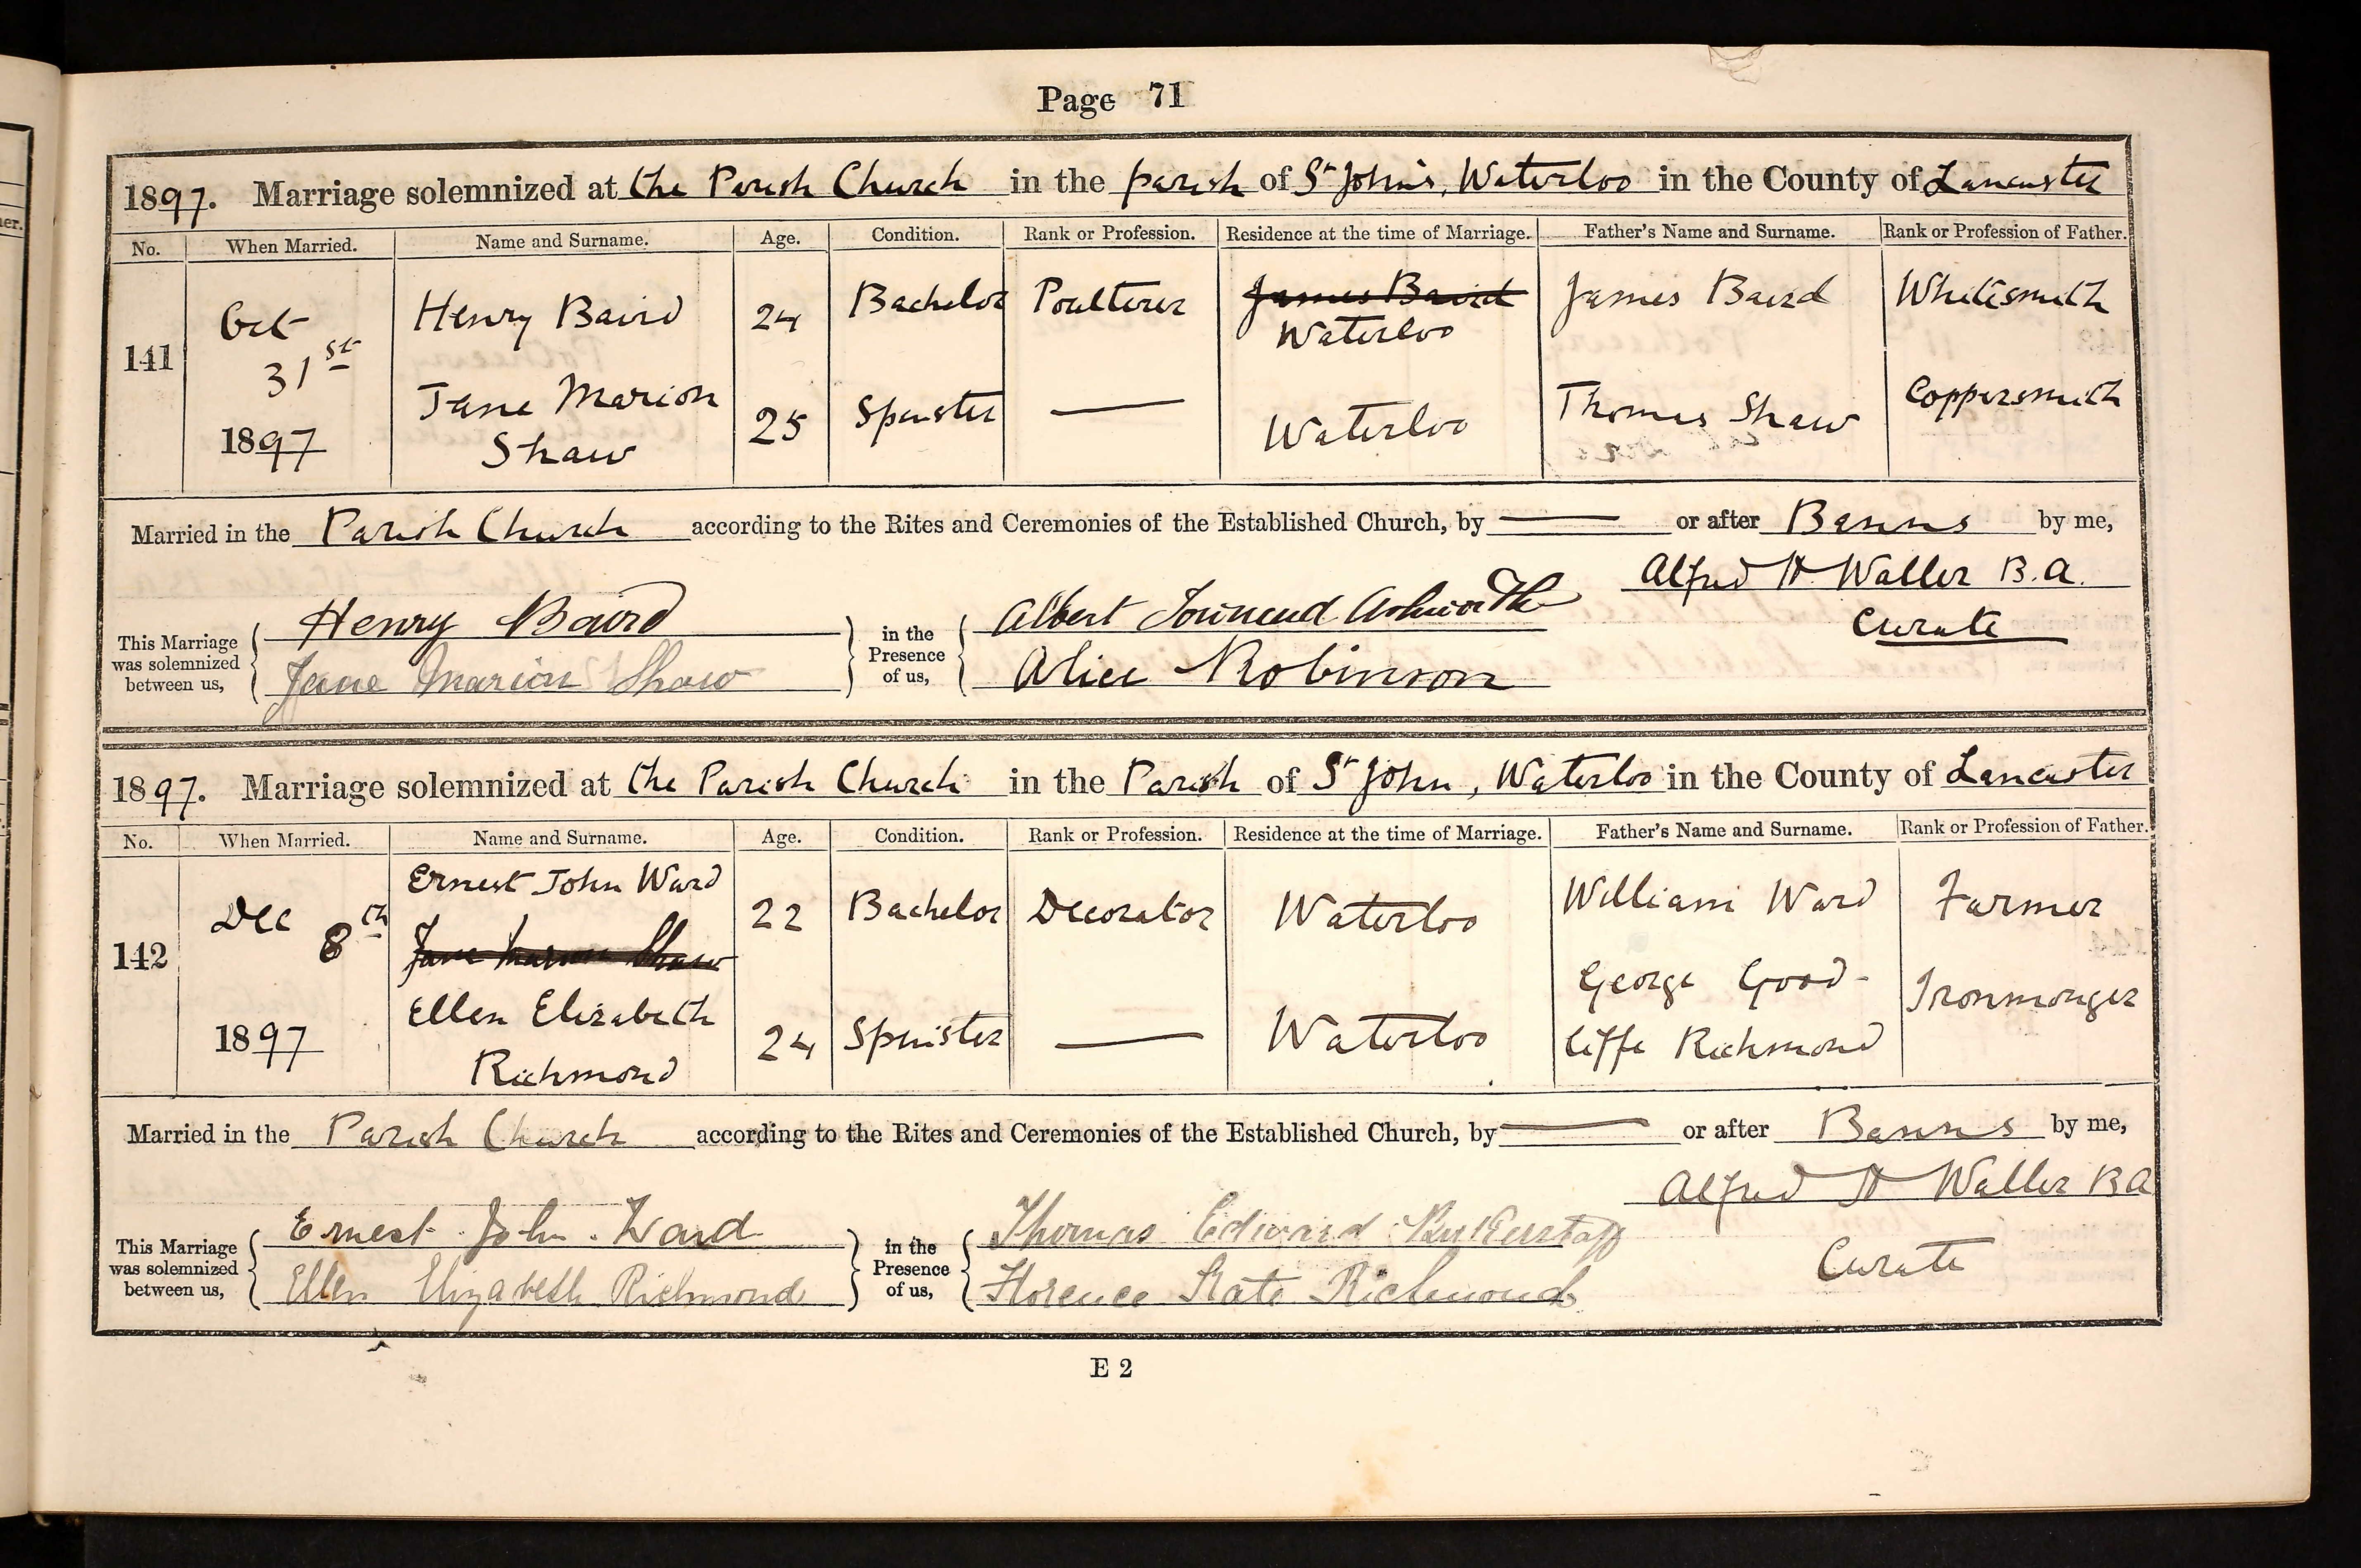 Page 71
1897. Marriage solemnized at the Parish Church in the parish of St John's, Waterloo in the County of Lancaster
No. When Married. Name and Surname. Age. Condition. Rank or Profession. Residence at the time of Marriage. Father's Name and Surname. Rank or Profession of Father.
141 Oct 31st 1897 Henry Baird 24 Bachelor Poulterer James Baird Waterloo James Baird Whitesmith
Jane Marion Shaw 25 Spinster — Waterloo Thomas Shaw Coppersmith
Married in the Parish Church according to the Rites and Ceremonies of the Established Church, by — or after Banns by me,
Alfred H Waller B.A.
Curate
This Marriage was solemnized between us, Henry Baird Jane Marion Shaw in the Presence of us, Albert Townend Ashworth Alice Robinson
1897. Marriage solemnized at the Parish Church in the Parish of St John, Waterloo in the County of Lancaster
No. When Married. Name and Surname. Age. Condition. Rank or Profession. Residence at the time of Marriage. Father's Name and Surname. Rank or Profession of Father.
142 Dec 8th 1897 Ernest John Ward 22 Bachelor Decorator Waterloo William Ward Farmer
Jane Marion Shaw
Ellen Elizabeth Richmond 24 Spinster — Waterloo George Good-liffe Richmond Ironmonger
Married in the Parish Church according to the Rites and Ceremonies of the Established Church, by — or after Banns by me,
Alfred H Waller BA
Curate
This Marriage was solemnized between us, Ernest John Ward Ellen Elizabeth Richmond in the Presence of us, Thomas Edward Florence Kate Richmond
E 2